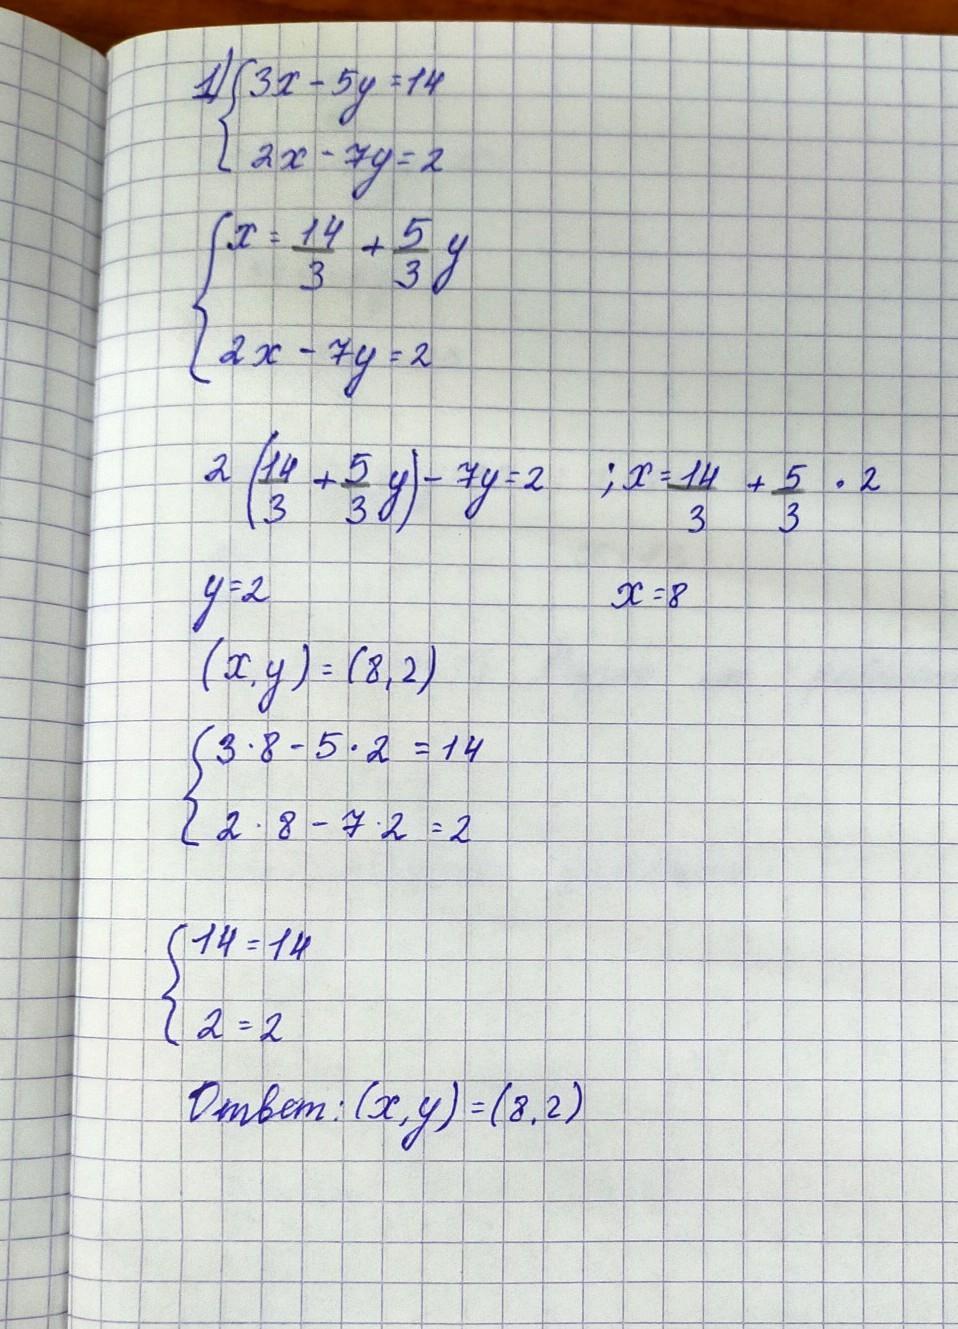 1) { 3x - 5y = 14
2x - 7y = 2
{ x = 14/3 + 5/3 y
2x - 7y = 2
2 (14/3 + 5/3 y) - 7y = 2 ; x = 14/3 + 5/3 · 2
y = 2 x = 8
(x, y) = (8, 2)
{ 3 · 8 - 5 · 2 = 14
2 · 8 - 7 · 2 = 2
{ 14 = 14
2 = 2
Ответ: (x, y) = (8, 2)